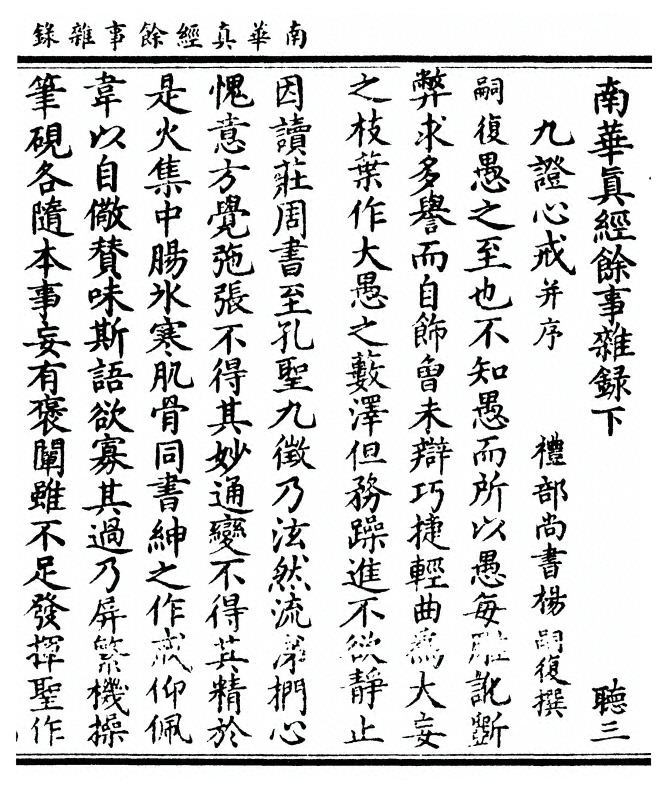 南華真經餘事雜錄
南華眞經餘事雜録下 聽三
九證心戒并序 禮部尚書楊嗣復撰
嗣復愚之至也不知愚而所以愚每訛斲
弊求多譽而自飾曾未辯巧捷輕曲爲大妄
之枝葉作大愚之藪澤但務躁進不欲靜止
因讀莊周書至孔聖九徵乃泫然流涕捫心
愧意方覺弛張不得其妙通變不得其精於
是火集中腸氷寒肌骨同書紳之作戒仰佩
韋以自儆賛味斯語欲寡其過乃屏繁機操
筆硯各隨本事妄有褒闡雖不足發揮聖作